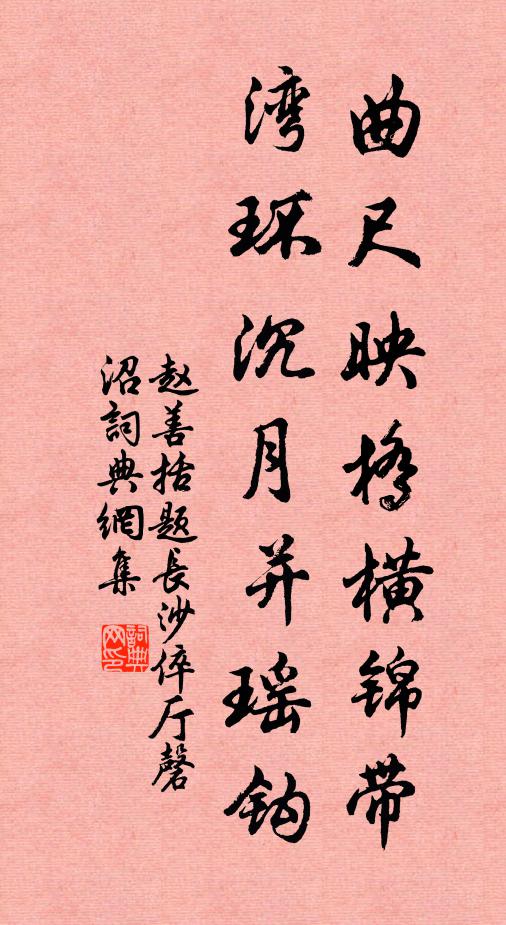 曲尺映橋横锦带
湾环沉月并瑶钩
赵善括题长沙倅厅磬
沼詞典網集
詞典网印